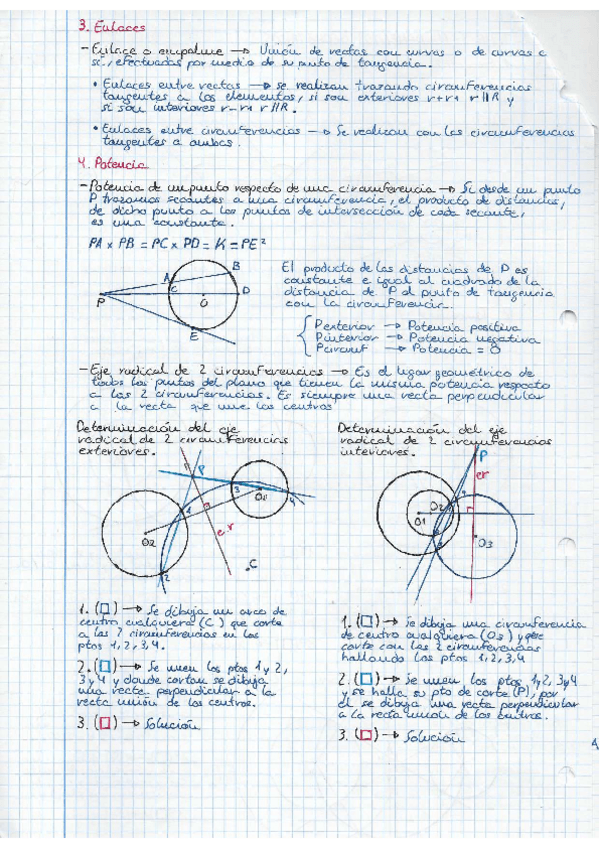 3. Enlaces
- Enlace o empalme → Unión de rectas con curvas o de curvas e
sí, efectuadas por medio de su punto de tangencia.
• Enlaces entre rectas → se realizan trazando circunferencias
tangentes a los elementos, si son exteriores r+r1 r||R y
si son interiores r-r1 r||R.
• Enlaces entre circunferencias → Se realizan con las circunferencias
tangentes a ambas.
4. Potencia
- Potencia de un punto respecto de una circunferencia → Si desde un punto
P trazamos secantes a una circunferencia, el producto de distancias,
de dicho punto a los puntos de intersección de cada secante,
es una constante.
PA x PB = PC x PD = K = PE²
El producto de las distancias de P es
constante e igual al cuadrado de la
distancia de P al punto de tangencia
con la circunferencia.
P exterior → Potencia positiva
P interior → Potencia negativa
P circunf → Potencia = 0
P A B C O D E
- Eje radical de 2 circunferencias → Es el lugar geométrico de
todos los puntos del plano que tienen la misma potencia respecto
a las 2 circunferencias. Es siempre una recta perpendicular
a la recta que une los centros
Determinación del eje
radical de 2 circunferencias
exteriores.
P
1 2 3 4
O1
O2
er
C
1. (□) → Se dibuja un arco de
centro cualquiera (C) que corte
a las 2 circunferencias en los
ptos 1, 2, 3, 4.
2. (□) → Se unen los ptos 1 y 2,
3 y 4 y donde cortan se dibuja
una recta perpendicular a la
recta unión de los centros.
3. (□) → Solución
Determinación del eje
radical de 2 circunferencias
interiores.
P
er
O1
O2
O3
1. (□) → Se dibuja una circunferencia
de centro cualquiera (O3) y que
corte con las 2 circunferencias
hallando los ptos 1, 2, 3, 4
2. (□) → Se unen los ptos 1y2, 3y4
y se halla su pto de corte (P), por
él se dibuja una recta perpendicular
a la recta unión de los centros.
3. (□) → Solución